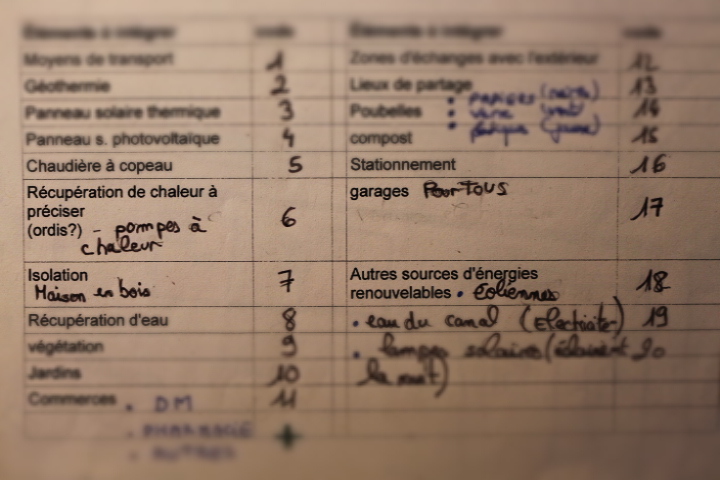 Éléments à intégrer code Éléments à intégrer code
Moyens de transport 1 Zones d'échanges avec l'extérieur 12
Géothermie 2 Lieux de partage 13
• papiers (noirs)
Panneau solaire thermique 3 Poubelles • verre (vert) 14
• plastique (jaune)
Panneau s. photovoltaïque 4 compost 15
Chaudière à copeau 5 Stationnement 16
Récupération de chaleur à
préciser
(ordis?) - pompes à
chaleur
6 garages Pour TOUS 17
Isolation
Maison en bois
7 Autres sources d'énergies
renouvelables • Eoliennes
18
Récupération d'eau 8 • eau du canal (Electricité) 19
végétation 9 • lampes solaires (éclairent 20
la nuit)
Jardins 10
Commerces • DM 11
• PHARMACIE
• AUTRES